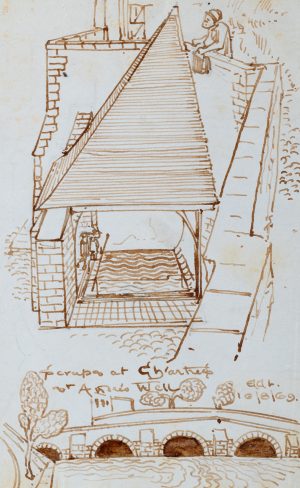 Scraps at Chartres
St Agnes Well
Edit.
10/8/69.